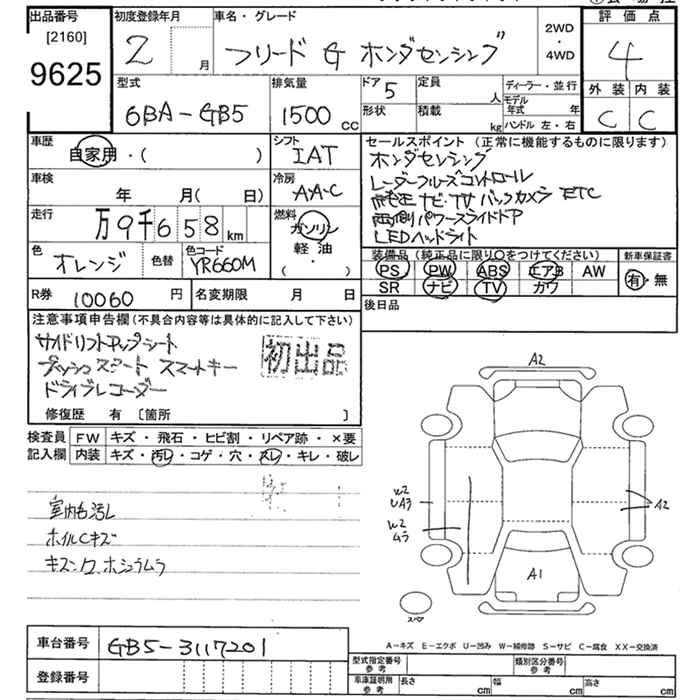 出品番号
[2160]
9625
初度登録年月
2 月
車名・グレード
フリード G ホンダセンシング
2WD
・
4WD
評価点
4
型式
6BA-GB5
排気量
1500 CC
ドア 5
形状
定員 人
積載 kg
ディーラー・並行
モデル年式 年
ハンドル 左・右
外装 内装
C C
車歴
自家用・( )
シフト
IAT
セールスポイント (正常に機能するものに限ります)
ホンダセンシング
レーダークルーズコントロール
純正ナビ・TV バックカメラ ETC
両側パワースライドドア
LEDヘッドライト
車検
年 月( 日)
冷房
AAC
走行
万9千658 km
燃料
ガソリン
軽油
・
( )
色
オレンジ
色替
色コード
YR660M
装備品 (純正品に限り○をつけてください)
PS PW ABS エアB AW
SR ナビ TV カワ
新車保証書
有・無
R券 10060 円
名変期限 月 日
後日品
注意事項申告欄 (不具合内容等は具体的に記入して下さい)
サイドリフトアップシート
プッシュスタート スマートキー
ドライブレコーダー
初出品
修復歴 有 〔箇所 〕
検査員 FW キズ・飛石・ヒビ割・リペア跡・×要
記入欄 内装 キズ・汚レ・コゲ・穴・スレ・キレ・破レ
室内色汚レ
ホイルCキズ
A2
W2
UA3
W2
ムラ
A2
A1
スペア
車台番号 GB5-3117201
登録番号
A-キズ E-エクボ U-凹み W-補修跡 S-サビ C-腐食 XX-交換済
型式指定番号 参考
類別区分番号 参考
車庫証明用 参考
長さ cm
幅 cm
高さ cm